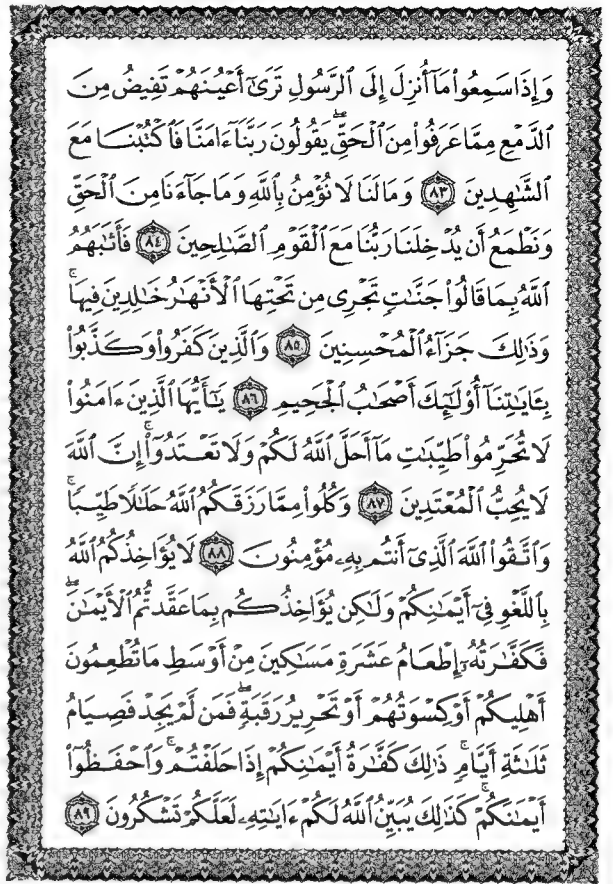 وَإِذَا سَمِعُوا۟ مَآ أُنزِلَ إِلَى ٱلرَّسُولِ تَرَىٰٓ أَعْيُنَهُمْ تَفِيضُ مِنَ
ٱلدَّمْعِ مِمَّا عَرَفُوا۟ مِنَ ٱلْحَقِّ ۖ يَقُولُونَ رَبَّنَآ ءَامَنَّا فَٱكْتُبْنَا مَعَ
ٱلشَّـٰهِدِينَ ٨٣ وَمَا لَنَا لَا نُؤْمِنُ بِٱللَّهِ وَمَا جَآءَنَا مِنَ ٱلْحَقِّ
وَنَطْمَعُ أَن يُدْخِلَنَا رَبُّنَا مَعَ ٱلْقَوْمِ ٱلصَّـٰلِحِينَ ٨٤ فَأَثَـٰبَهُمُ
ٱللَّهُ بِمَا قَالُوا۟ جَنَّـٰتٍ تَجْرِى مِن تَحْتِهَا ٱلْأَنْهَـٰرُ خَـٰلِدِينَ فِيهَا ۚ
وَذَٰلِكَ جَزَآءُ ٱلْمُحْسِنِينَ ٨٥ وَٱلَّذِينَ كَفَرُوا۟ وَكَذَّبُوا۟
بِـَٔايَـٰتِنَآ أُو۟لَـٰٓئِكَ أَصْحَـٰبُ ٱلْجَحِيمِ ٨٦ يَـٰٓأَيُّهَا ٱلَّذِينَ ءَامَنُوا۟
لَا تُحَرِّمُوا۟ طَيِّبَـٰتِ مَآ أَحَلَّ ٱللَّهُ لَكُمْ وَلَا تَعْتَدُوٓا۟ ۚ إِنَّ ٱللَّهَ
لَا يُحِبُّ ٱلْمُعْتَدِينَ ٨٧ وَكُلُوا۟ مِمَّا رَزَقَكُمُ ٱللَّهُ حَلَـٰلًا طَيِّبًا ۚ
وَٱتَّقُوا۟ ٱللَّهَ ٱلَّذِىٓ أَنتُم بِهِۦ مُؤْمِنُونَ ٨٨ لَا يُؤَاخِذُكُمُ ٱللَّهُ
بِٱللَّغْوِ فِىٓ أَيْمَـٰنِكُمْ وَلَـٰكِن يُؤَاخِذُكُم بِمَا عَقَّدتُّمُ ٱلْأَيْمَـٰنَ ۖ
فَكَفَّـٰرَتُهُۥٓ إِطْعَامُ عَشَرَةِ مَسَـٰكِينَ مِنْ أَوْسَطِ مَا تُطْعِمُونَ
أَهْلِيكُمْ أَوْ كِسْوَتُهُمْ أَوْ تَحْرِيرُ رَقَبَةٍ ۖ فَمَن لَّمْ يَجِدْ فَصِيَامُ
ثَلَـٰثَةِ أَيَّامٍ ۚ ذَٰلِكَ كَفَّـٰرَةُ أَيْمَـٰنِكُمْ إِذَا حَلَفْتُمْ ۚ وَٱحْفَظُوٓا۟
أَيْمَـٰنَكُمْ ۚ كَذَٰلِكَ يُبَيِّنُ ٱللَّهُ لَكُمْ ءَايَـٰتِهِۦ لَعَلَّكُمْ تَشْكُرُونَ ٨٩